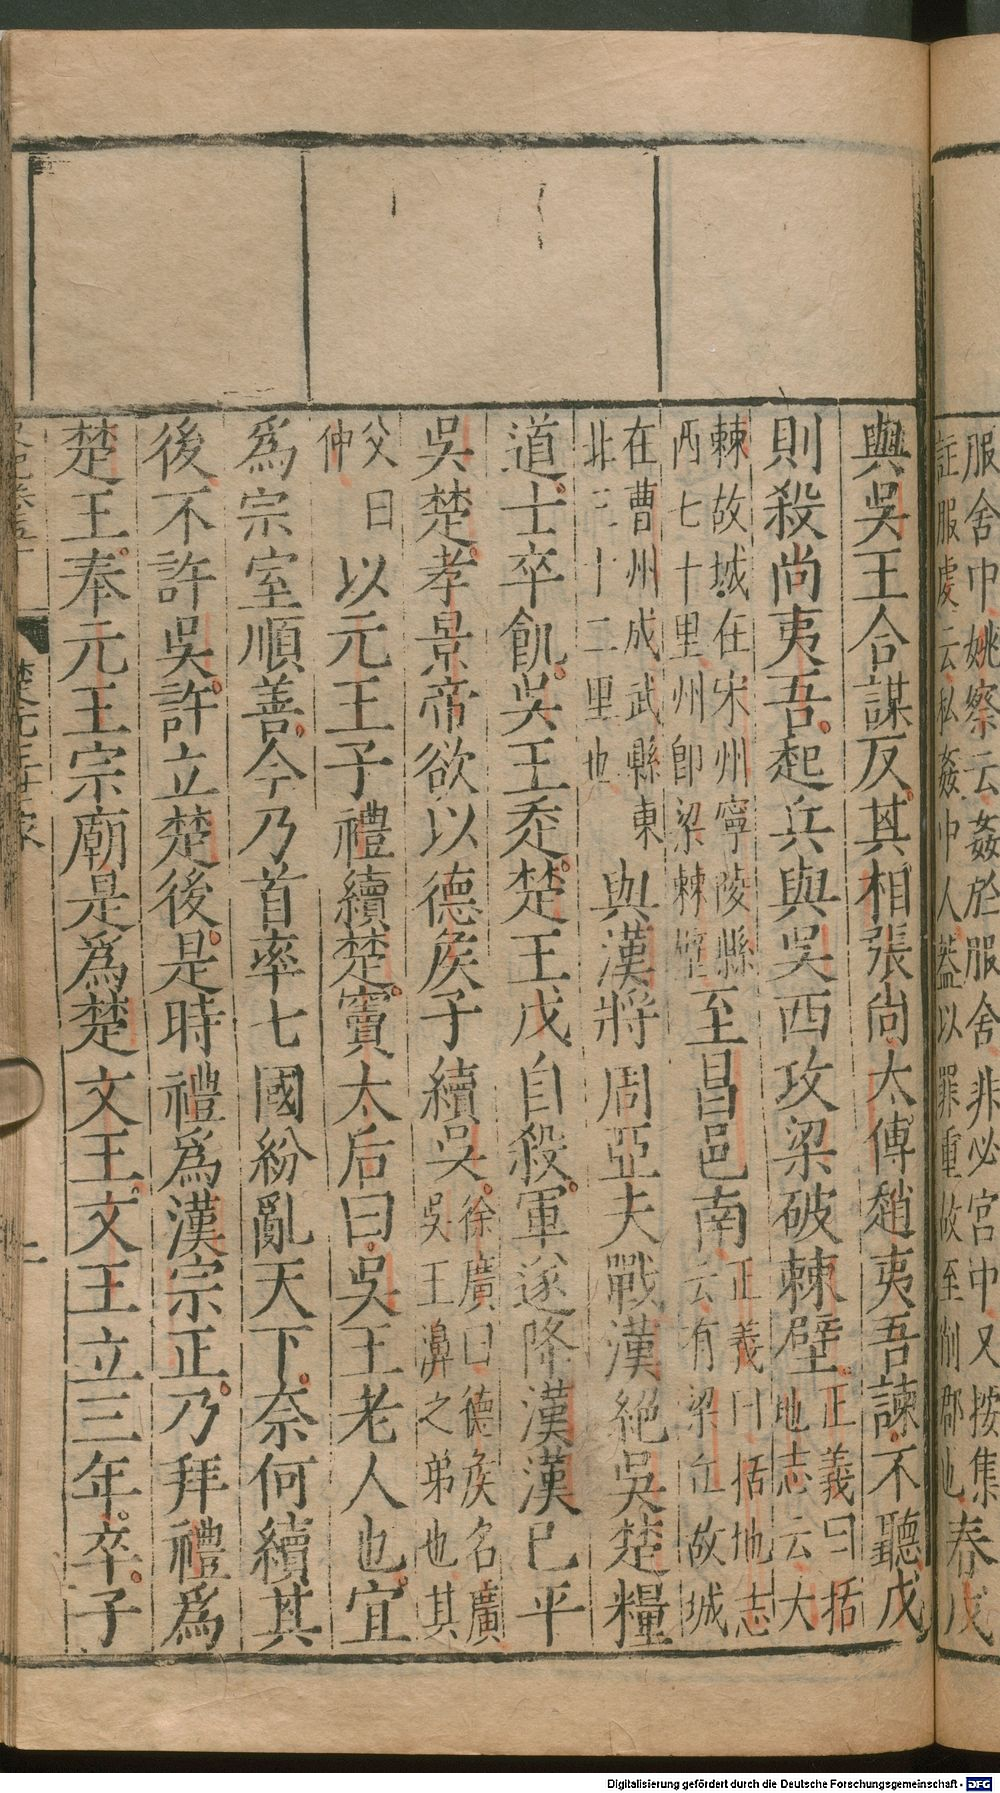 服舍中姚察云姦於服舍非必宮中又按集
註服虔云私姦中人蓋以罪重故至削郡也
春戊
與吳王合謀反其相張尚太傅趙夷吾諫不聽戊
則殺尚夷吾起兵與吳西攻梁破棘壁
正義曰括
地志云大
棘故城在宋州寧陵縣
西七十里州卽梁棘壁
至昌邑南
正義曰括地志
云有梁丘故城
在曹州成武縣東
北三十二里也
與漢將周亞夫戰漢絕吳楚糧
道士卒飢吳王走楚王戊自殺軍遂降漢漢已平
吳楚孝景帝欲以德侯子續吳
徐廣曰德侯名廣
吳王濞之弟也其
父曰
仲
以元王子禮續楚竇太后曰吳王老人也宜
為宗室順善今乃首率七國紛亂天下奈何續其
後不許吳許立楚後是時禮爲漢宗正乃拜禮爲
楚王奉元王宗廟是爲楚文王文王立三年卒子
楚元王世家
二
Digitalisierung gefördert durch die Deutsche Forschungsgemeinschaft - DFG